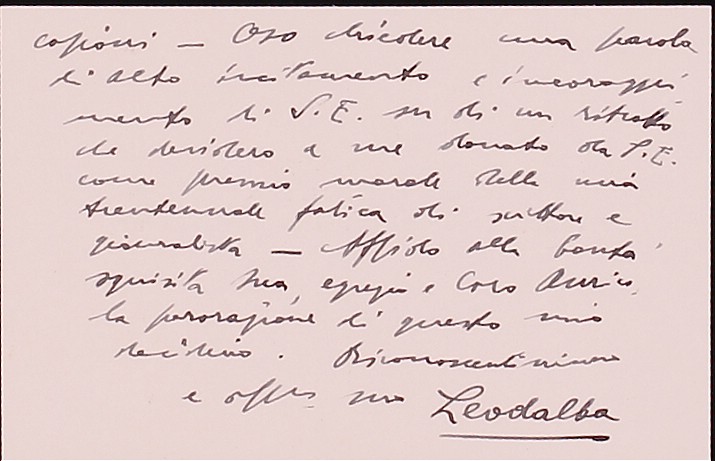 copioni — Oso chiedere una parola
di alto incitamento e incoraggia
mento di S.E. su di un ritratto
che desidero a me donato da S.E.
come premio morale della mia
trentennale fatica di scrittore e
giornalista — Affido alla bontà
squisita sua, egregio e caro Amico,
la perorazione di questo mio
desiderio. Riconoscentissimo
e aff. suo Leodalba